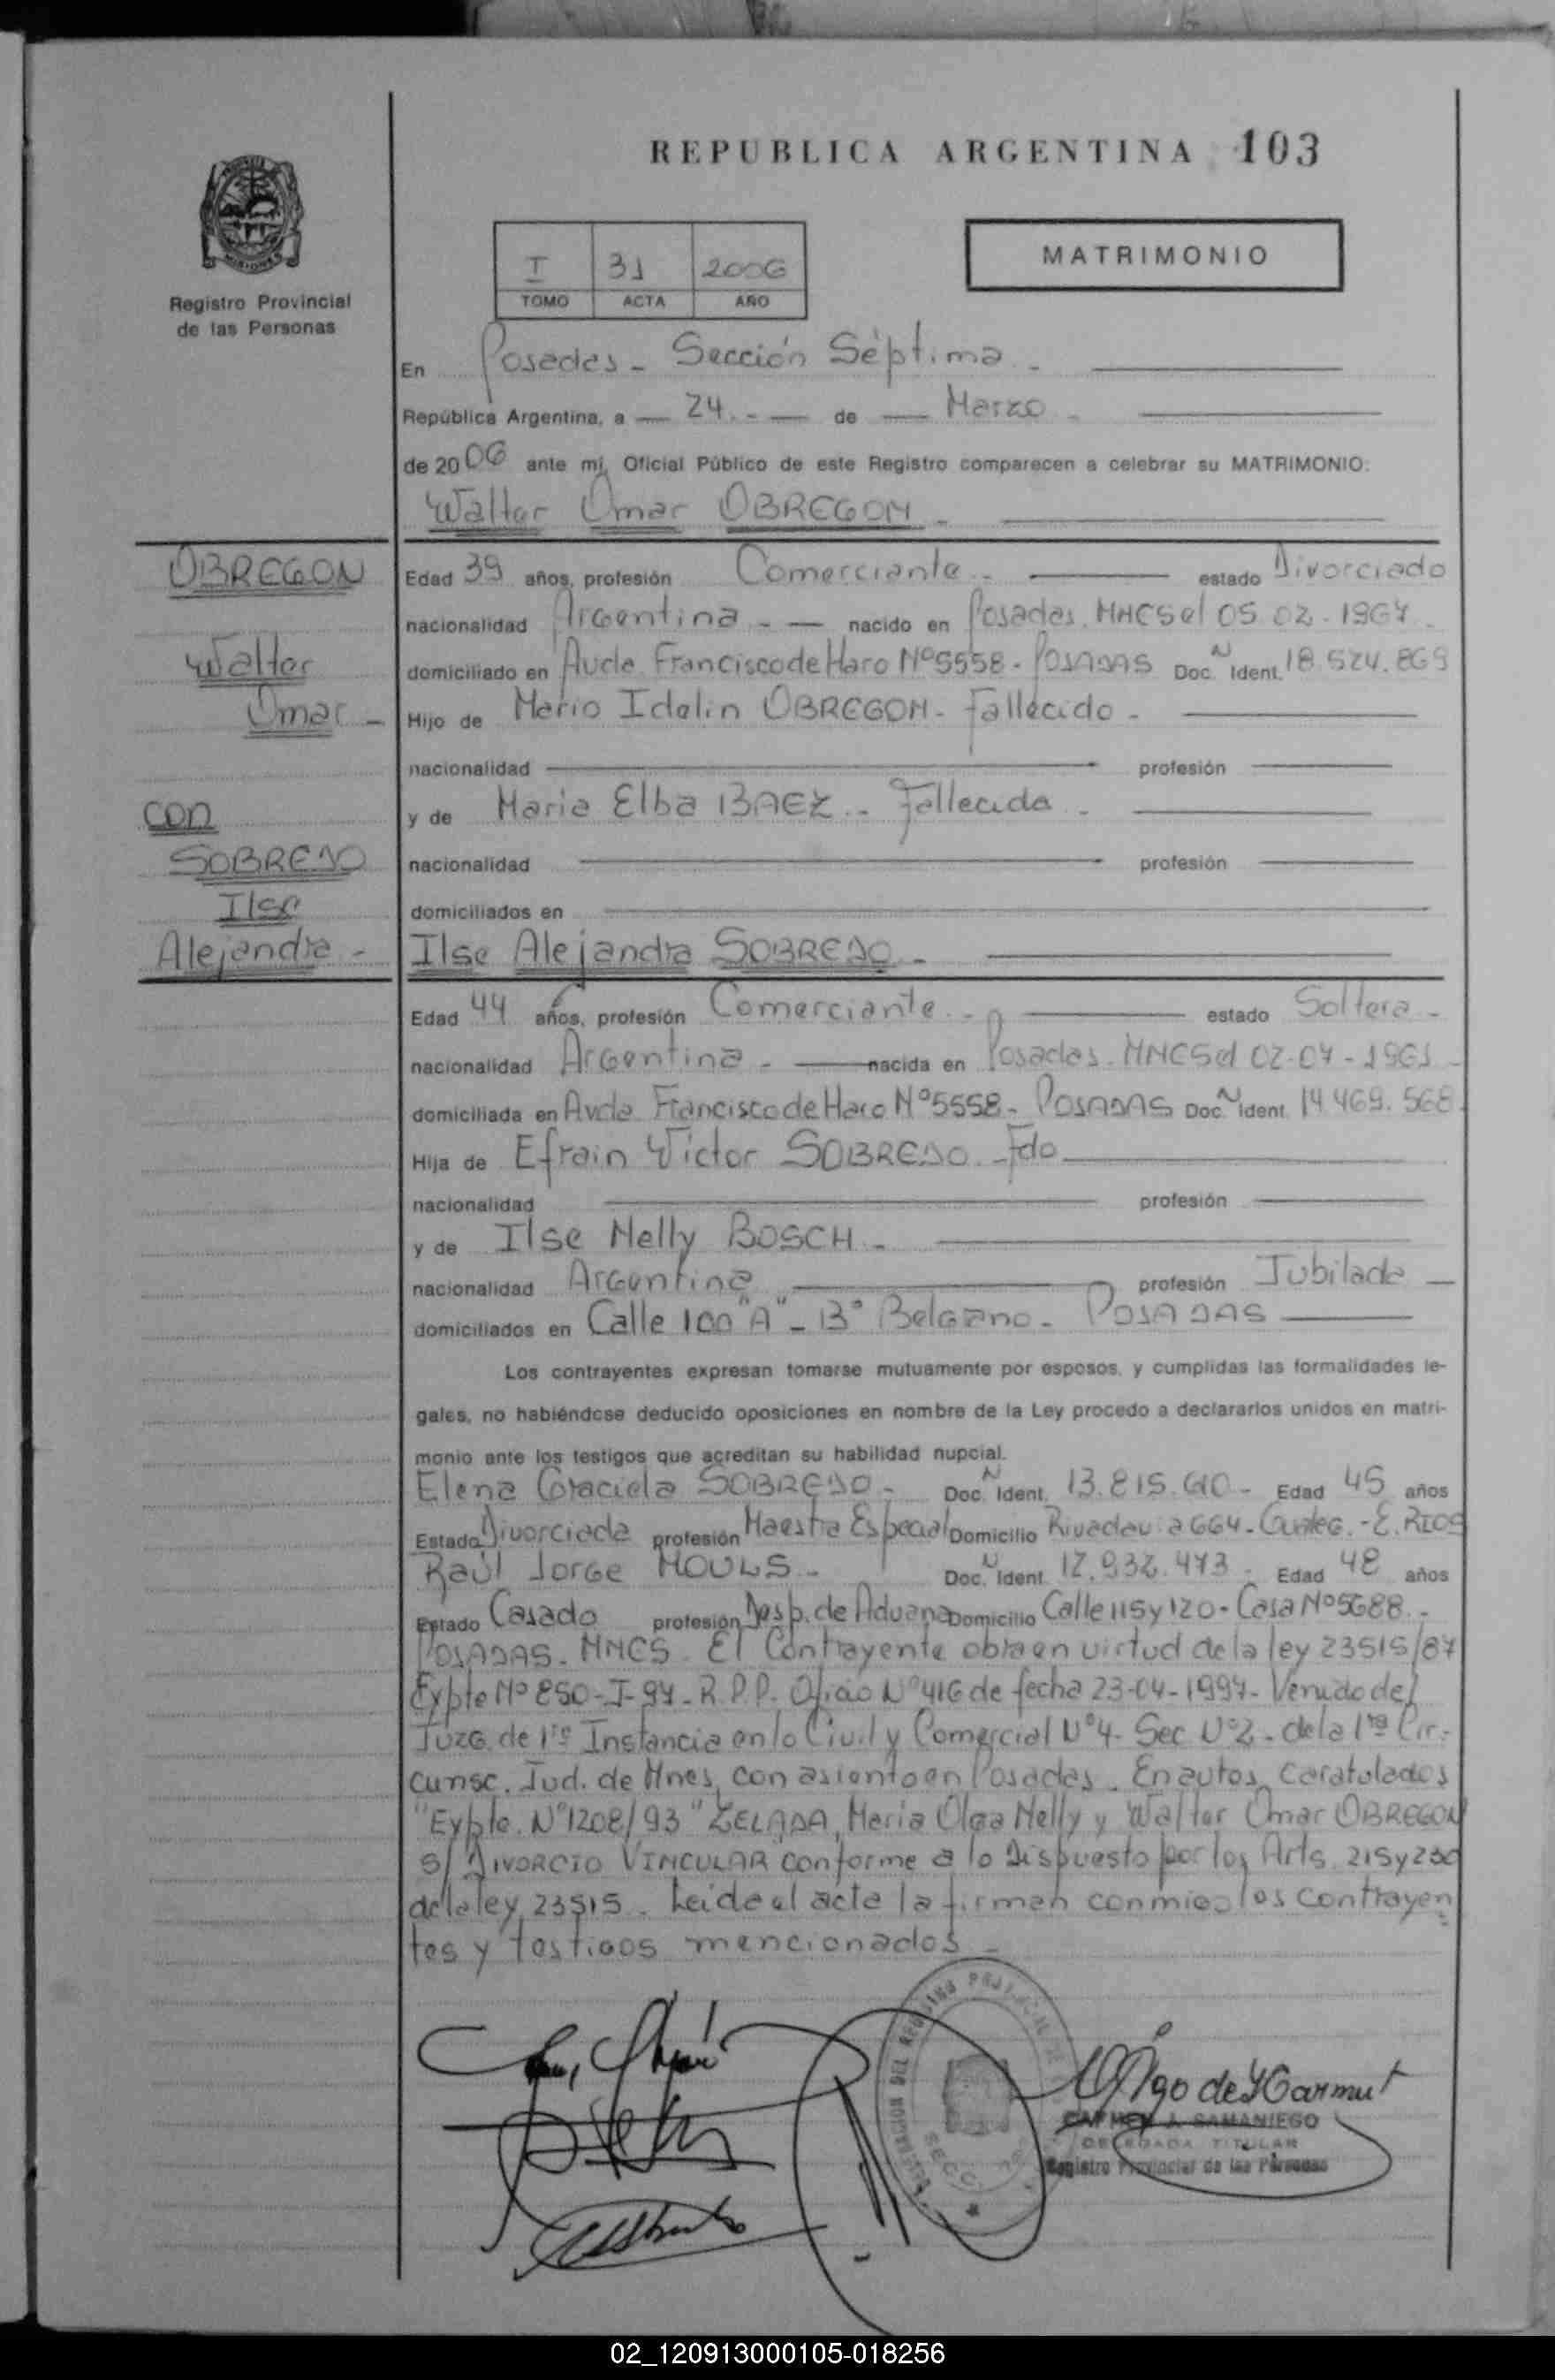 REPUBLICA ARGENTINA 103
MISIONES
Registro Provincial
de las Personas
I 31 2006
TOMO ACTA AÑO
MATRIMONIO
En Posadas - Sección Séptima -
República Argentina, a — 24 - — de — Marzo -
de 2006 ante mí, Oficial Público de este Registro comparecen a celebrar su MATRIMONIO:
Walter Omar OBREGON -
OBREGON
Walter
Omar -
con
SOBREDO
Ilse
Alejandra -
Edad 39 años, profesión Comerciante - estado Divorciado
nacionalidad Argentina - — nacido en Posadas. MNES el 05.02.1967.
domiciliado en Avda Francisco de Haro Nº5558 - POSADAS Doc. N Ident. 18.524.869
Hijo de Mario Idalin OBREGON - Fallecido -
nacionalidad profesión
y de Maria Elba BAEZ - Fallecida -
nacionalidad profesión
domiciliados en
Ilse Alejandra SOBREDO -
Edad 44 años, profesión Comerciante - estado Soltera -
nacionalidad Argentina - nacida en Posadas - MNES el 02-07-1961 -
domiciliada en Avda Francisco de Haro Nº5558 - POSADAS Doc. N Ident. 14.469.568
Hija de Efrain Victor SOBREDO - Fdo
nacionalidad profesión
y de Ilse Nelly BOSCH -
nacionalidad Argentina profesión Jubilada —
domiciliados en Calle 100 "A" - Bº Belgrano - POSADAS
Los contrayentes expresan tomarse mutuamente por esposos, y cumplidas las formalidades le-
gales, no habiéndose deducido oposiciones en nombre de la Ley procedo a declararlos unidos en matri-
monio ante los testigos que acreditan su habilidad nupcial.
Elena Graciela SOBREDO - Doc. N Ident. 13.815.610 - Edad 45 años
Estado Divorciada profesión Maestra Especial Domicilio Rivadavia 664 - - E. RIOS
Raúl Jorge MOULS - Doc. N Ident. 12.932.473 - Edad 48 años
Estado Casado profesión Desp. de Aduana Domicilio Calle 115 y 120 - Casa Nº5688 -
POSADAS - MNES. El Contrayente obra en virtud de la ley 23515/87
Expte Nº 850-I-97 - R.P.P. Oficio Nº416 de fecha 23-04-1997 - Venido del
Juzg. de 1ra Instancia en lo Civil y Comercial Nº4 - Sec Nº2 - de la 1ra Cir-
cunsc. Jud. de Mnes, con asiento en Posadas. En autos caratulados
"Expte. Nº1208/93 "ZELADA, Maria Olga Nelly y Walter Omar OBREGON
S/ DIVORCIO VINCULAR" conforme a lo Dispuesto por los Arts. 215 y 230
de la ley 23515. Leida el acta la firman conmigo los contrayen
tes y testigos mencionados -
CARMEN J. SAMANIEGO
DELEGADA TITULAR
Registro Provincial de las Personas
02_120913000105-018256